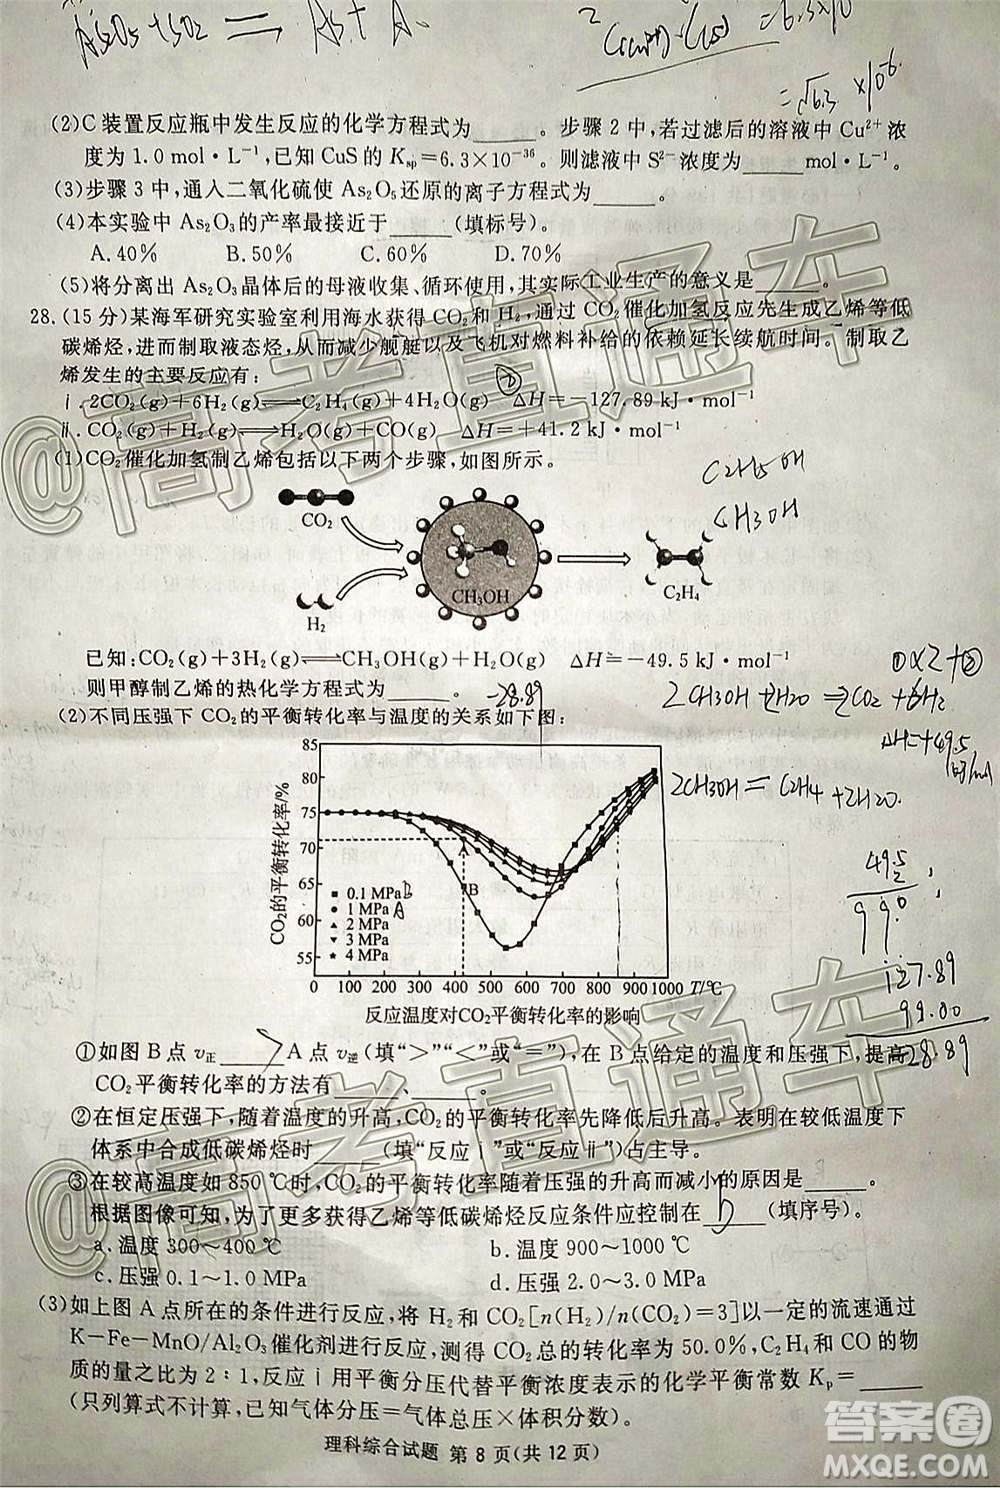 As2O5+SO2 ══ As+ A
=6.3×10
=√6.3 ×10-6.
(2)C装置反应瓶中发生反应的化学方程式为______。步骤2中,若过滤后的溶液中Cu²⁺浓
度为1.0 mol·L⁻¹,已知CuS的Ksp=6.3×10⁻³⁶。则滤液中S²⁻浓度为______mol·L⁻¹。
(3)步骤3中,通入二氧化硫使As₂O₅还原的离子方程式为______。
(4)本实验中As₂O₃的产率最接近于______(填标号)。
A.40% B.50% C.60% D.70%
(5)将分离出As₂O₃晶体后的母液收集、循环使用,其实际工业生产的意义是______。
28.(15分)某海军研究实验室利用海水获得CO₂和H₂,通过CO₂催化加氢反应先生成乙烯等低
碳烯烃,进而制取液态烃,从而减少舰艇以及飞机对燃料补给的依赖延长续航时间。制取乙
烯发生的主要反应有:
ⅰ.2CO₂(g)+6H₂(g)⇌C₂H₄(g)+4H₂O(g) ΔH=−127.89 kJ·mol⁻¹
ⅱ.CO₂(g)+H₂(g)⇌H₂O(g)+CO(g) ΔH=+41.2 kJ·mol⁻¹
(1)CO₂催化加氢制乙烯包括以下两个步骤,如图所示。
C2H5OH
CH3OH
CO₂
CH₃OH
C₂H₄
H₂
已知:CO₂(g)+3H₂(g)⇌CH₃OH(g)+H₂O(g) ΔH=−49.5 kJ·mol⁻¹
①×2+②
则甲醇制乙烯的热化学方程式为______。
-28.89
2CH3OH+2H2O ⇌2CO2+6H2
(2)不同压强下CO₂的平衡转化率与温度的关系如下图:
ΔH=+49.5
kJ/mol
2CH3OH = C2H4+2H2O.
CO₂的平衡转化率/%
85
80
75
70
65
60
55
A
B
0.1 MPa B
1 MPa A
2 MPa
3 MPa
4 MPa
0 100 200 300 400 500 600 700 800 900 1000 T/℃
反应温度对CO₂平衡转化率的影响
49.5
2
99.0
127.89
99.00
-28.89
①如图B点v正__>__A点v逆(填“>”“<”或“=”),在B点给定的温度和压强下,提高
CO₂平衡转化率的方法有______、______。
②在恒定压强下,随着温度的升高,CO₂的平衡转化率先降低后升高。表明在较低温度下
体系中合成低碳烯烃时______(填“反应ⅰ”或“反应ⅱ”)占主导。
③在较高温度如850 ℃时,CO₂的平衡转化率随着压强的升高而减小的原因是______。
根据图像可知,为了更多获得乙烯等低碳烯烃反应条件应控制在__b__(填序号)。
a.温度300~400 ℃ b.温度900~1000 ℃
c.压强0.1~1.0 MPa d.压强2.0~3.0 MPa
(3)如上图A点所在的条件进行反应,将H₂和CO₂[n(H₂)/n(CO₂)=3]以一定的流速通过
K−Fe−MnO/Al₂O₃催化剂进行反应,测得CO₂总的转化率为50.0%,C₂H₄和CO的物
质的量之比为2∶1,反应ⅰ用平衡分压代替平衡浓度表示的化学平衡常数Kp=______
(只列算式不计算,已知气体分压=气体总压×体积分数)。
理科综合试题 第8页(共12页)
@高考直通车
@高考直通车
答案圈
MXQE.COM